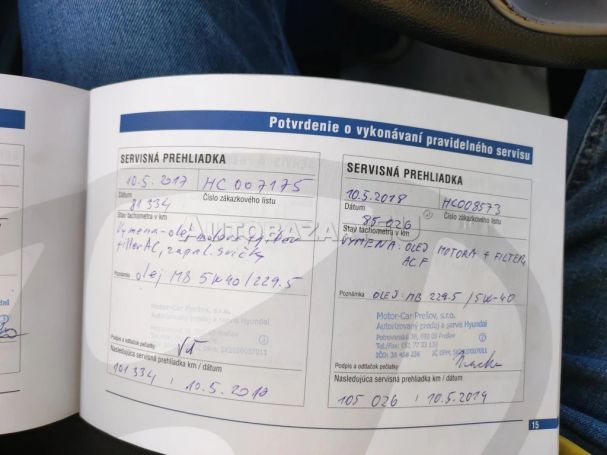 Potvrdenie o vykonávaní pravidelného servisu
SERVISNÁ PREHLIADKA
10.5.2017 HC007175
Dátum Číslo zákazkového listu
81 334
Stav tachometra v km
Výmena - olej motora +
filter AC, zapaľ. sviečky
olej MB 5W40/229.5
Poznámka
Motor-Car Prešov, s.r.o.
Autorizovaný predaj a servis Hyundai
Podpis a odtlačok pečiatky
Nasledujúca servisná prehliadka km / dátum
101 334 / 10.5.2018
SERVISNÁ PREHLIADKA
10.5.2018 HC008573
Dátum Číslo zákazkového listu
85 026
Stav tachometra v km
VÝMENA: OLEJ MOTORA + FILTER,
AC.F
Poznámka OLEJ: MB 229.5 / 5W-40
Motor-Car Prešov, s.r.o.
Autorizovaný predaj a servis Hyundai
Petrovianska 38, 080 05 Prešov
Tel./Fax: 051 77 33 133
Podpis a odtlačok pečiatky
Nasledujúca servisná prehliadka km / dátum
105 026 / 10.5.2019
15
AUTOBAZAR